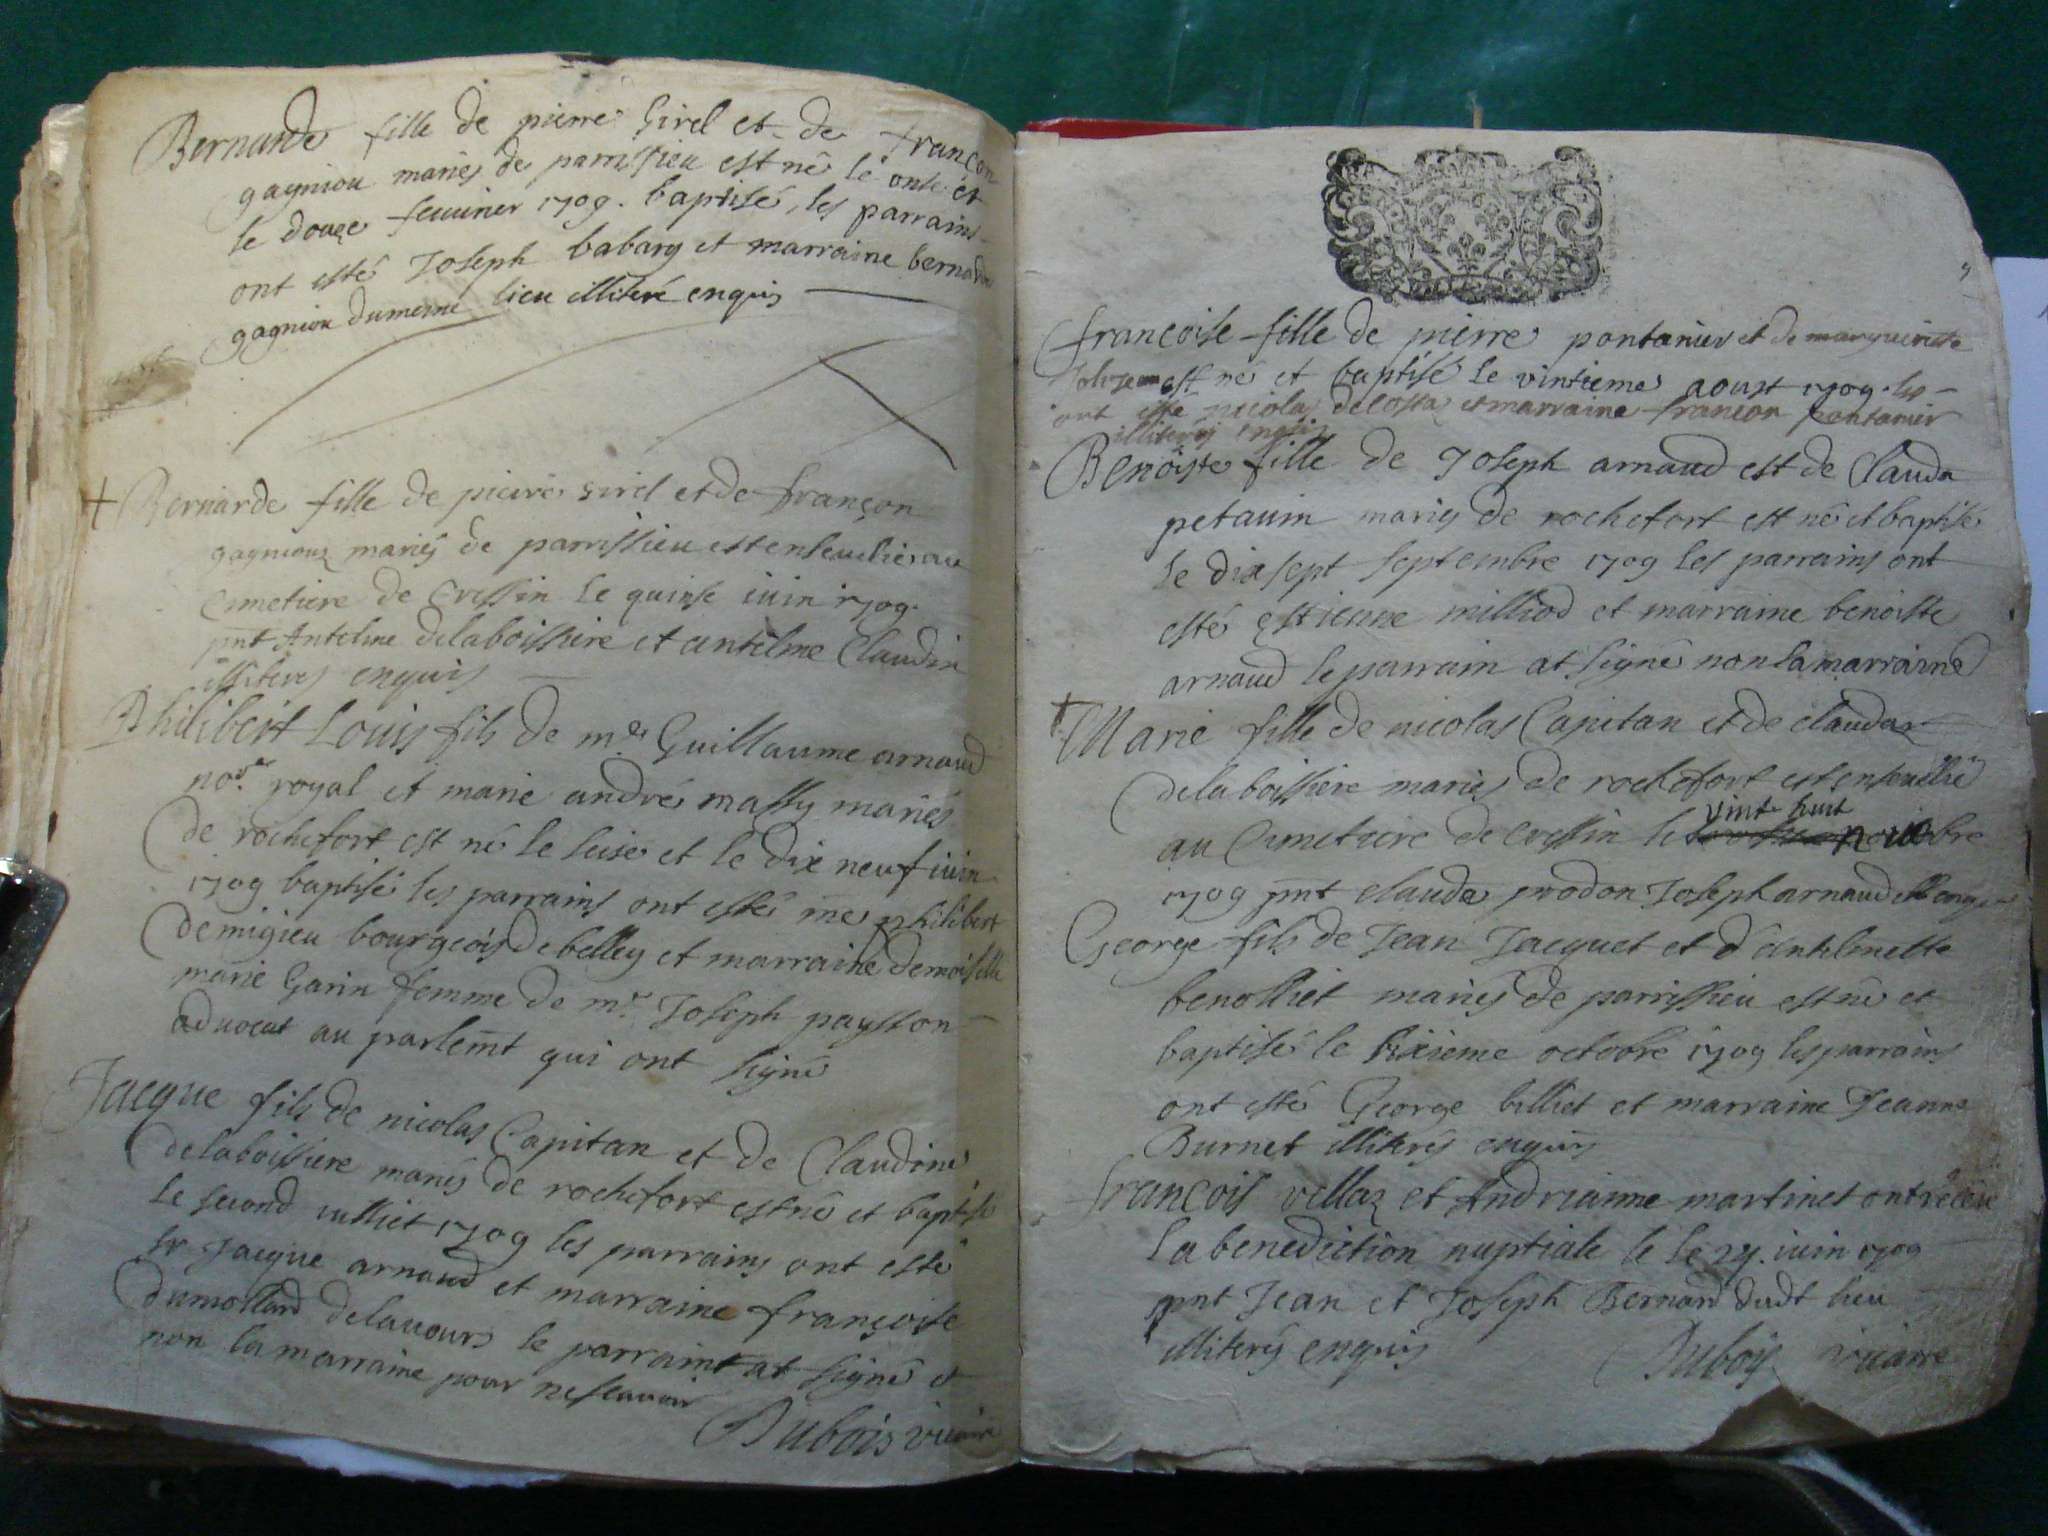 Bernarde fille de pierre Girel et de françon
gagniou mariés de parrissieu est né le onse et
le douçe feuurier 1709. baptisé, les parrains
ont esté Joseph babary et marraine bernarde
gagniou dumesme lieu illiteré enquis
Bernarde fille de pierre Girel et de françon
gagniouz mariés de parrissieu est enseuelie au
Cimetiere de Cressin le quinse iuin 1709.
pnt Antelme delaboissiere et antelme Claudin
illiteres enquis
Philibert Louis fils de me Guillaume arnaud
nore royal et marie andré massy mariés
de rochefort est né le seise et le dix neuf iuin
1709 baptisé les parrains ont esté me philibert
demigieu bourgeois de belley et marraine demoiselle
marie Garin femme de mr Joseph paysson
aduocat au parlemt qui ont signé
Jacque fils de nicolas Capitan et de Claudine
delaboissiere mariés de rochefort est né et baptisé
le second iulliet 1709 les parrains ont esté
sr Jacque arnaud et marraine françoise
dumollard delauours le parraint at signé et
non la marraine pour ne scauoir
Dubois vicaire
françoise fille de pierre pontanier et de margueritte
est né et baptisé le vintieme aoust 1709. les
ont esté nicolas decosta et marraine françon pontanier
illiterés enquis
Benoiste fille de Joseph arnaud est de Clauda
petauin mariés de rochefort est né et baptisé
le dixsept septembre 1709 les parrains ont
esté estienne milliod et marraine benoiste
arnaud le parrain at signé non la marraine
Marie fille de nicolas Capitan et de claudaz
delaboissiere mariés de rochefort est enseuelie
vint huit
au Cimetiere de cressin le nouobre
1709 pnt claude prodon Joseph arnaud
George fils de Jean Jacquet et d'antelmette
benolliet mariés de parrissieu est né et
baptisé le sixieme octobre 1709 les parrains
ont esté George billiet et marraine Jeanne
Burnet illiterés enquis
francois villaz et Andrianne martinet ont receu
la benediction nuptiale le le 24. iuin 1709
pnt Jean et Joseph Bernard dudt lieu
illiterés enquis Dubois vicaire